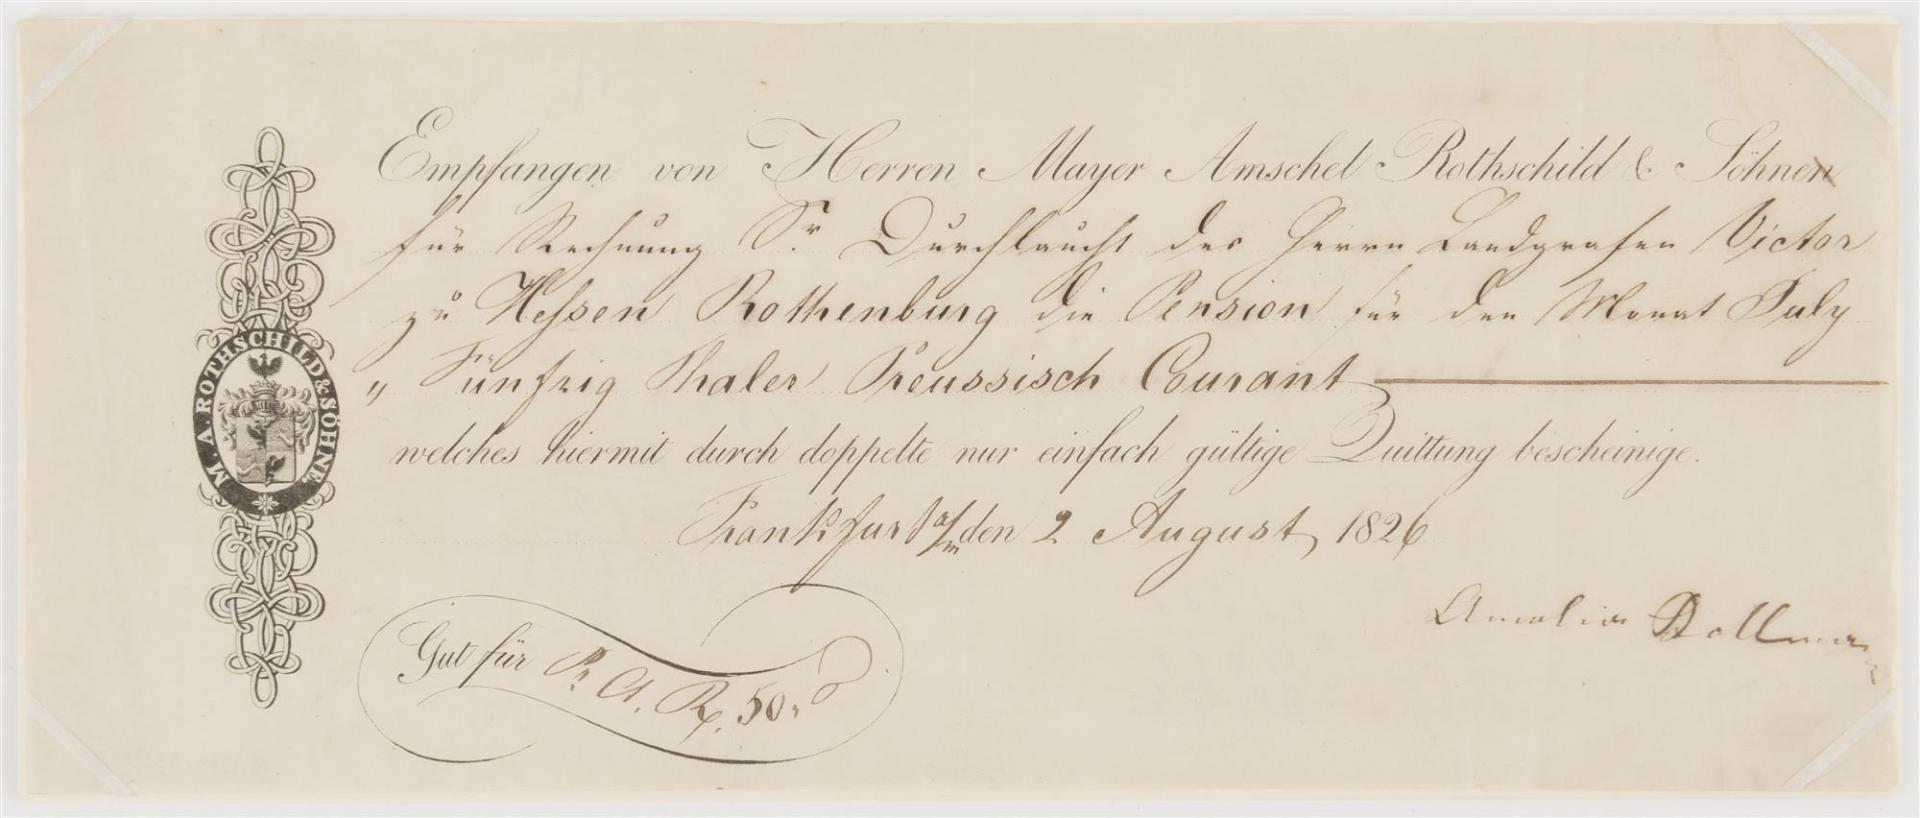 M. A. ROTHSCHILD & SÖHNE
Empfangen von Herren Mayer Amschel Rothschild & Söhnen
für Rechnung Sr. Durchlaucht des Herrn Landgrafen Victor
zu Hessen Rothenburg die Pension für den Monat July
" Fünfzig Thaler Preussisch Courant
welches hiermit durch doppelte nur einfach gültige Quittung bescheinige.
Frankfurt a/m den 2 August, 1826
Amalia Dollman
Gut für Pr. Ct. Rx. 50 "